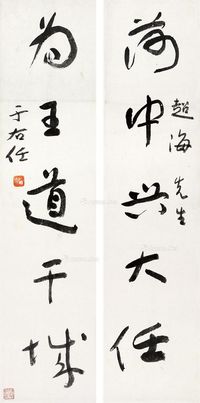 荷中兴大任
超海先生
为王道干城
于右任